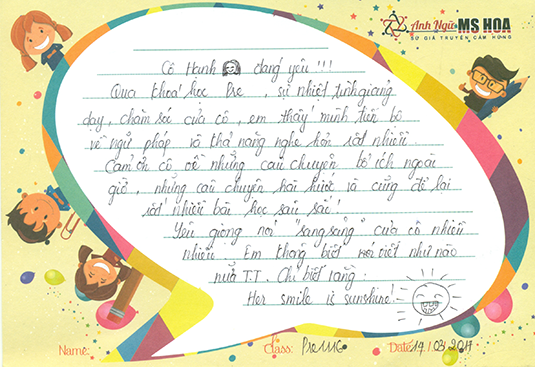 Anh Ngữ MS HOA
SỨ GIẢ TRUYỀN CẢM HỨNG
Cô Hanh đáng yêu !!!
Qua khoá học Pre , sự nhiệt tình giảng
dạy, chăm sóc của cô , em thấy mình tiến bộ
về ngữ pháp và khả năng nghe hơn rất nhiều.
Cảm ơn cô về những câu chuyện bổ ích ngoài
giờ , những câu chuyện hài hước và cũng để lại
rất nhiều bài học sâu sắc!
Yêu giọng nói "sang sảng" của cô nhiều
nhiều. Em không biết nói viết như nào
nữa T.T. Chỉ biết rằng:
Her smile is sunshine!
Name: Class: Pre Date: 14 / 03 2017